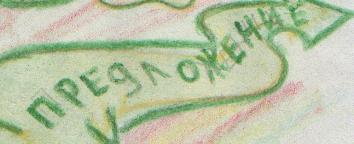 ПРЕДЛОЖЕНИЕ